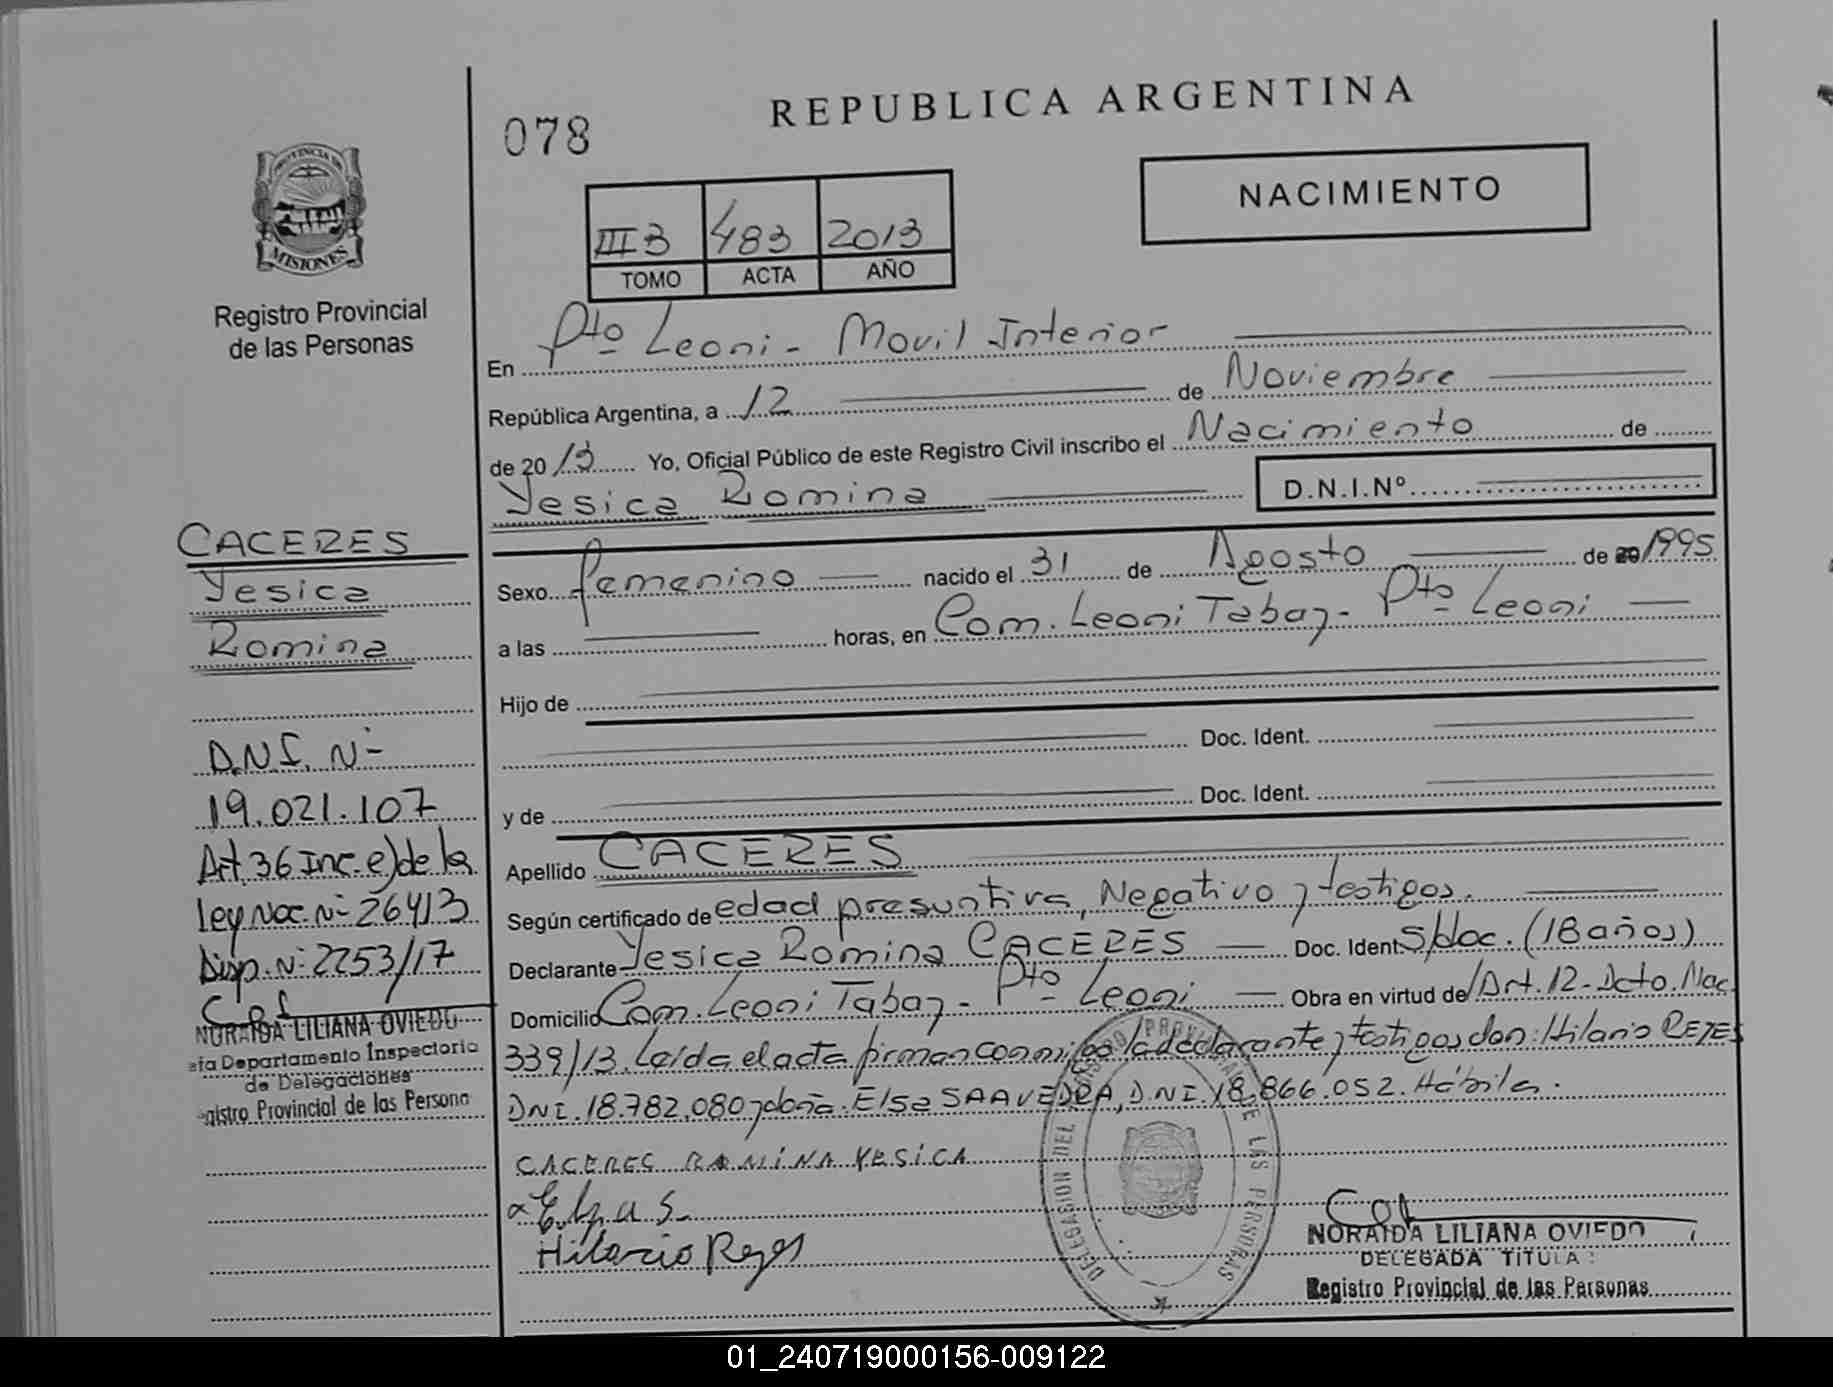 REPUBLICA ARGENTINA
078
NACIMIENTO
PROVINCIA DE
MISIONES
Registro Provincial
de las Personas
III B 483 2013
TOMO ACTA AÑO
En Pto Leoni - Movil Interior
República Argentina, a 12 de Noviembre
de 2013 Yo, Oficial Público de este Registro Civil inscribo el Nacimiento de
Yesica Romina D.N.I.Nº
CACERES
Yesica
Romina
D.N.I. Nº
19.021.107
Art. 36 Inc. e) de la
Ley Nac. Nº 26413
Disp. Nº 2253/17
NORAIDA LILIANA OVIEDO
Departamento Inspectoria
de Delegaciones
gistro Provincial de las Persona
Sexo femenino nacido el 31 de Agosto de 20 1995
a las horas, en Com. Leoni Tabay - Pto Leoni
Hijo de
Doc. Ident.
y de Doc. Ident.
Apellido CACERES
Según certificado de edad presuntiva, Negativo y testigos.
Declarante Yesica Romina CACERES Doc. Ident. S/doc. (18 años)
Domicilio Com. Leoni Tabay - Pto Leoni Obra en virtud de Art. 12 - Dcto. Nac.
339/13. Leída el acta firman conmigo la declarante y testigos don: Hilario REYES
DNI. 18.782.080 y doña: Elsa SAAVEDRA, D.NI. 18.866.052. Hábiles.
CACERES ROMINA YESICA
Hilario Reyes
DELEGASION DEL REGISTRO PROVINCIAL DE LAS PERSONAS
NORAIDA LILIANA OVIEDO
DELEGADA TITULA
Registro Provincial de las Personas
01_240719000156-009122